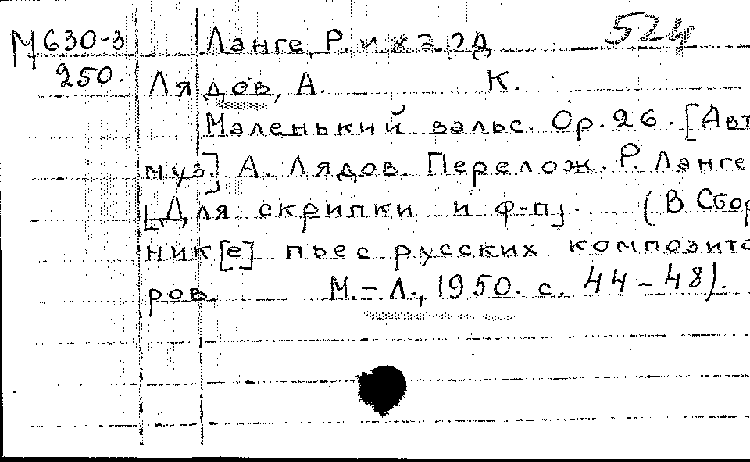 М630-3 Ланге, Рихард 524
250. Лядов, А. К.
Маленький вальс. Ор. 26. [Авт
муз.] А. Лядов. Перелож. Р. Ланге
[Для скрипки и ф-п]. (В Сбор
ник[е] пьес русских композито
ров. М.-Л., 1950. с. 44-48).